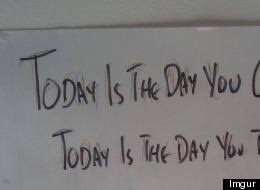 TODAY IS THE DAY YOU
TODAY IS THE DAY YOU
Imgur